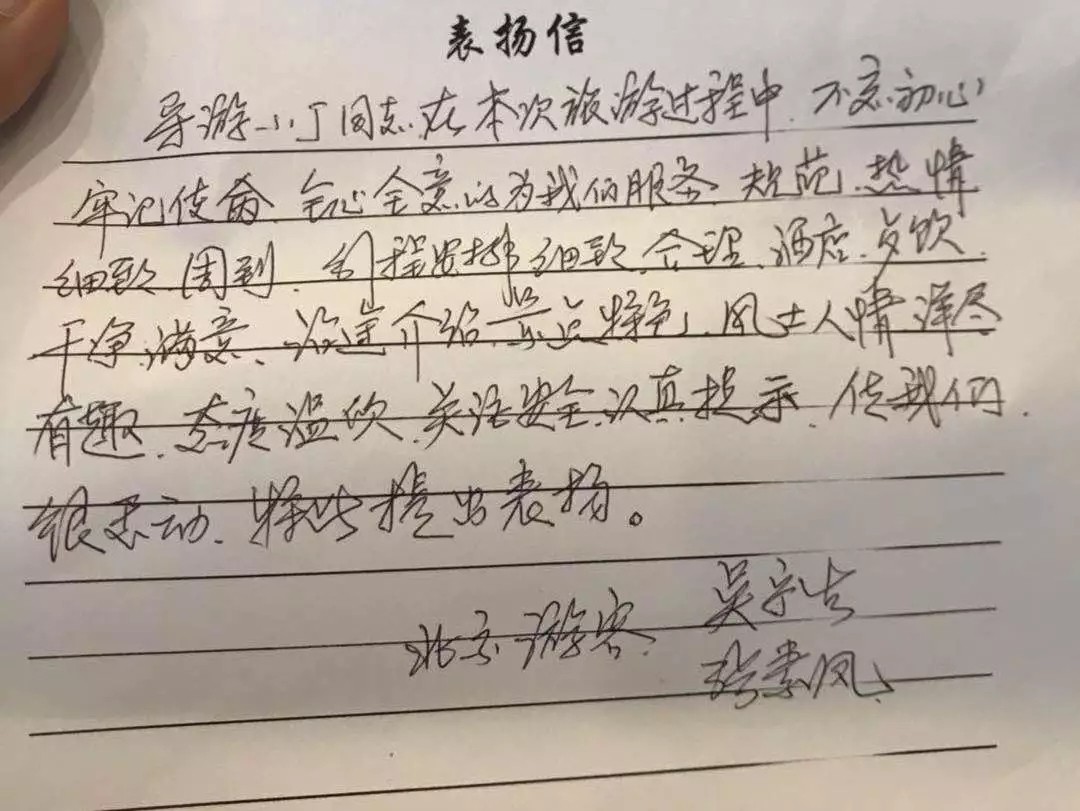 表扬信
导游小丁同志在本次旅游过程中、不忘初心
牢记使命、全心全意的为我们服务、规范、热情
细致、周到、行程安排细致、合理、酒店、歺饮、
干净、满意、沿途介绍景点特色、风土人情详尽
有趣、态度温、关注安全、认真提示、使我们
很感动、特此提出表扬。
北京游客 吴
张素凤